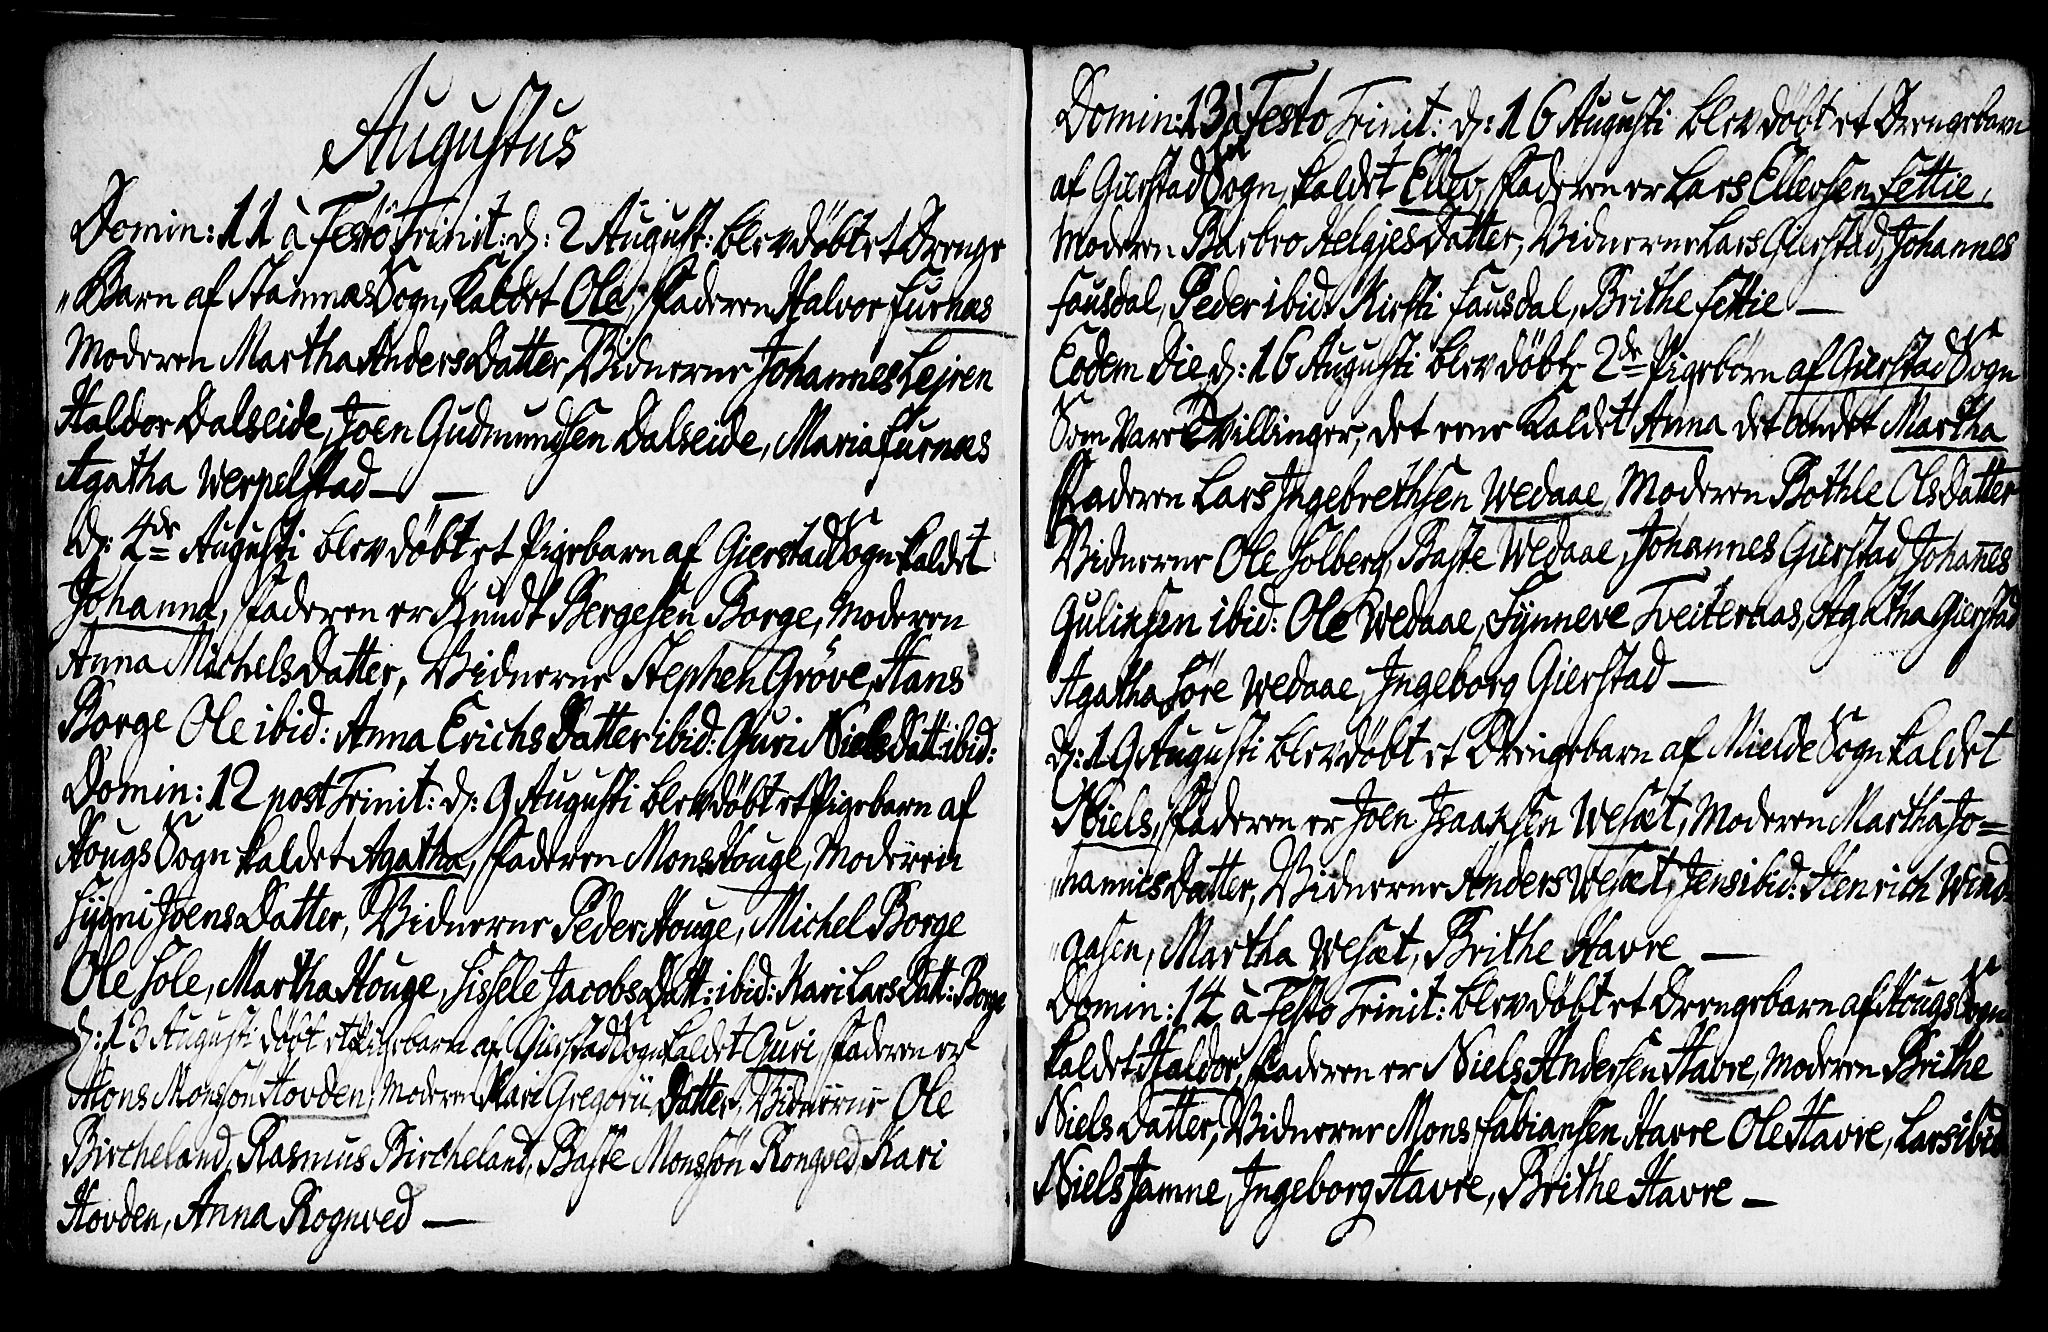 Augustus
Domin: 11 à Festo Trinit: d: 2 August: blev døbt et Drenge
"Barn af Stamnæs Sogn, Kaldet Ole, Faderen Halvor Furnæs
Moderen Martha Anders Datter, Vidnerne Johannes Lejren
Haldor Dalseide, Joen Gudmundsen Dalseide, Maria Furnæs
Agatha Werpelstad —  —
d: 4de Augusti blev døbt et Pigebarn af Gierstad Sogn kaldet
Johanna, Faderen er Knudt Bergesen Borge, Moderen
Anna Michels Datter, Vidnerne Stephen Grøve, Hans
Borge Ole ibid: Anna Erichs Datter ibid: Guri Niels Datt: ibid:
Domin: 12 post Trinit: d: 9 Augusti blev døbt et Pigebarn af
Hougs Sogn kaldet Agatha, Faderen Mons Houge, Moderen
Sygni Joens Datter, Vidnerne Peder Houge, Michel Borge
Ole Sole, Martha Houge, Sissele Jacobs Datt: ibid: Kari Lars Datt: Borge
d: 13 Augusti døbt et Pigebarn af Gierstad Sogn kaldet Guri, Faderen er
Mons Monssøn Hovden, Moderen Kari Gregorii Datter, Vidnerne Ole
Bircheland, Rasmus Bircheland, Baste Monssøn Rongved, Kari
Hovden, Anna Rognved —
Domin: 13 à Festo Trinit: d: 16 Augusti blev døbt et Drengebarn
af Gierstad Sogn, kaldet Ellev, Faderen er Lars Ellevsen Fettie,
Moderen Barbro Helgjes Datter, Vidnerne Lars Gierstad, Johannes
Fousdal, Peder ibid: Kirsti Fousdal, Brithe Fettie —
Eodem Die d: 16 Augusti blev døbte 2de Pigebørn af Gierstad Sogn
Som Vare Tvillinger, det eene Kaldet Anna det Andet Martha
Faderen Lars Ingebrethsen Wedaae, Moderen Bothle Ols Datter
Vidnerne Ole Solberg, Baste Wedaae, Johannes Gierstad, Johan̄es
Guliksen ibid: Ole Wedaae, Synneve Tveiternæs, Agatha Gierstad
Agatha Søre Wedaae, Ingeborg Gierstad —
d: 19 Augusti blev døbt et Drengebarn af Mielde Sogn kaldet
Niels, Faderen er Joen Isaaksen Wesæt, Moderen Martha Jo=
"hannes Datter, Vidnerne Anders Wesæt, Jens ibid: Henrich Wind-
"aasen, Martha Wesæt, Brithe Havre —
Domin: 14 à Festo Trinit: blev døbt et Drengebarn af Hougs Sogn
kaldet Haldor, Faderen er Niels Andersen Havre, Moderen Brithe
Niels Datter, Vidnerne Mons Fabiansen Havre Ole Havre, Lars ibid
Niels Jamne, Ingeborg Havre, Brithe Havre —